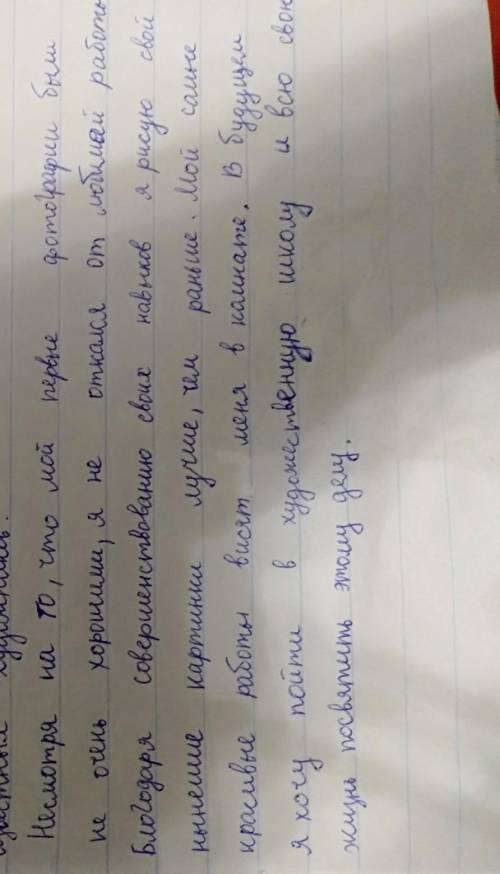 художники.
Несмотря на то, что мой первые фотографии были
не очень хорошими, я не откался от любимай работы
Благодаря совершенствованию своих навыков я рисую свой
нынешие картинки лучше, чем раньше. Мой самые
красивые работы висят меня в камнате. В будущем
я хочу пойти в художественную школу и всю свою
жизнь посвятить этому делу.